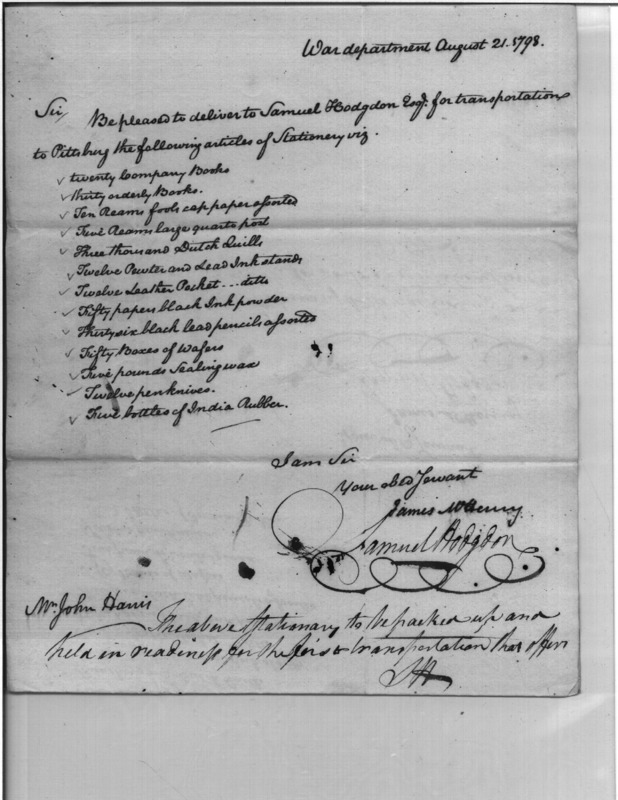 War department August 21. 1798.
Sir, Be pleased to deliver to Samuel Hodgdon Esqr. for transportation
to Pittsburg the following articles of Stationery viz.
twenty Company Books
thirty orderly Books.
Ten Reams fools cap paper assorted
Five Reams large quarto post
Three thousand Dutch Quills
Twelve Pewter and Lead Ink stands
Twelve Leather Pocket ... ditto
Fifty papers black Ink powder
Thirty six black lead pencils assorted
Fifty Boxes of Wafers
Five pounds Sealing wax
Twelve penknives.
Five bottles of India Rubber.
I am Sir
Your obed Servant
James McHenry
Samuel Hodgdon
Mr. John Harris
The above stationary to be packed up and
held in readiness for the first transportation that offers
SH